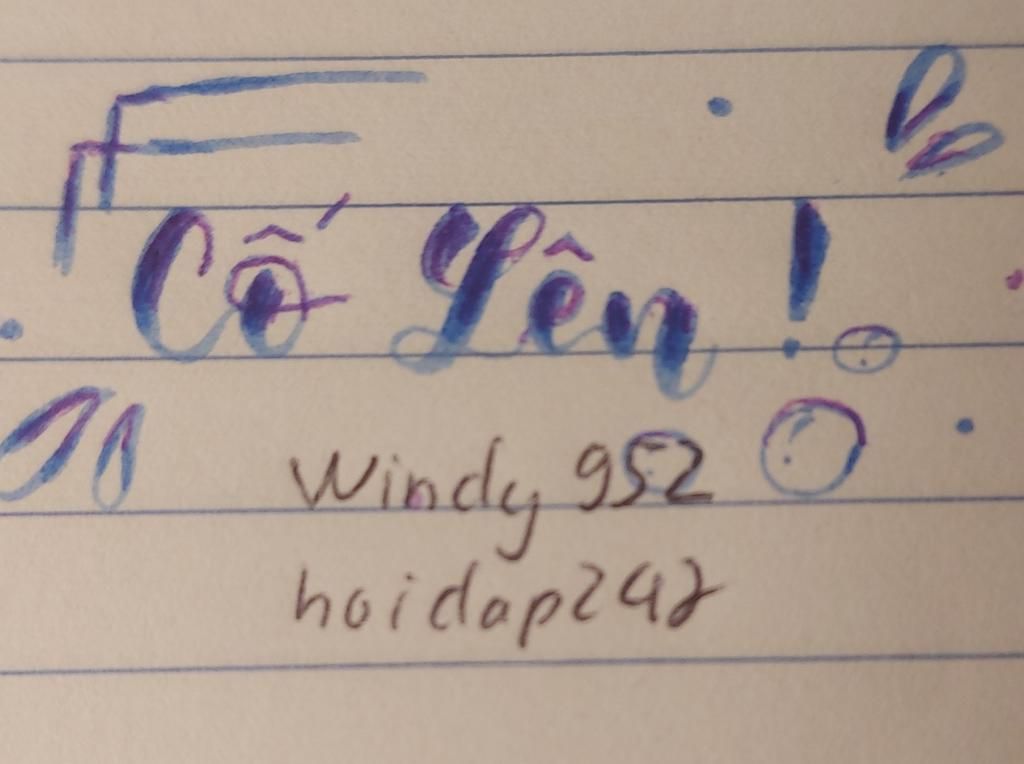 Cố Lên !
Windy 952
hoidap247